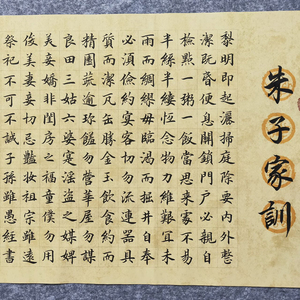 朱子家訓
黎明即起灑掃庭除要內外整
潔既昏便息關鎖門戶必親自
檢點一粥一飯當思來處不易
半絲半縷恆念物力維艱宜未
雨而綢繆毋臨渴而掘井自奉
必須儉約宴客切勿流連器具
質而潔瓦缶勝金玉飲食約而
精園蔬逾珍饈勿營華屋勿謀
良田三姑六婆實淫盜之媒婢
美妾嬌非閨房之福童僕勿用
俊美妻妾切忌豔妝祖宗雖遠
祭祀不可不誠子孫雖愚經書